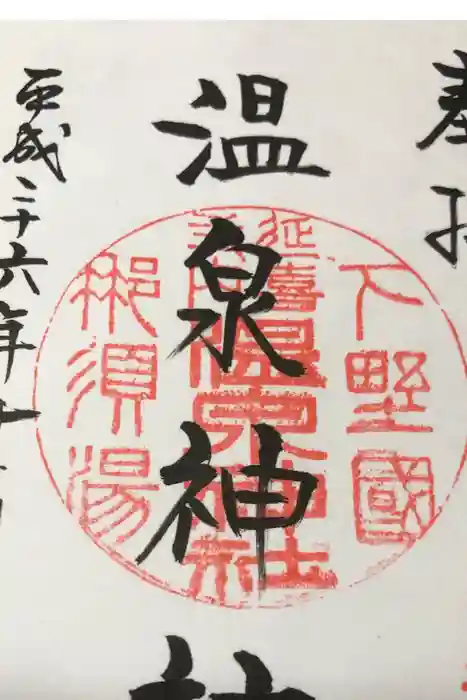 奉拝
下野國
延喜
温泉神社
温泉神社
那須湯
平成二十六年十